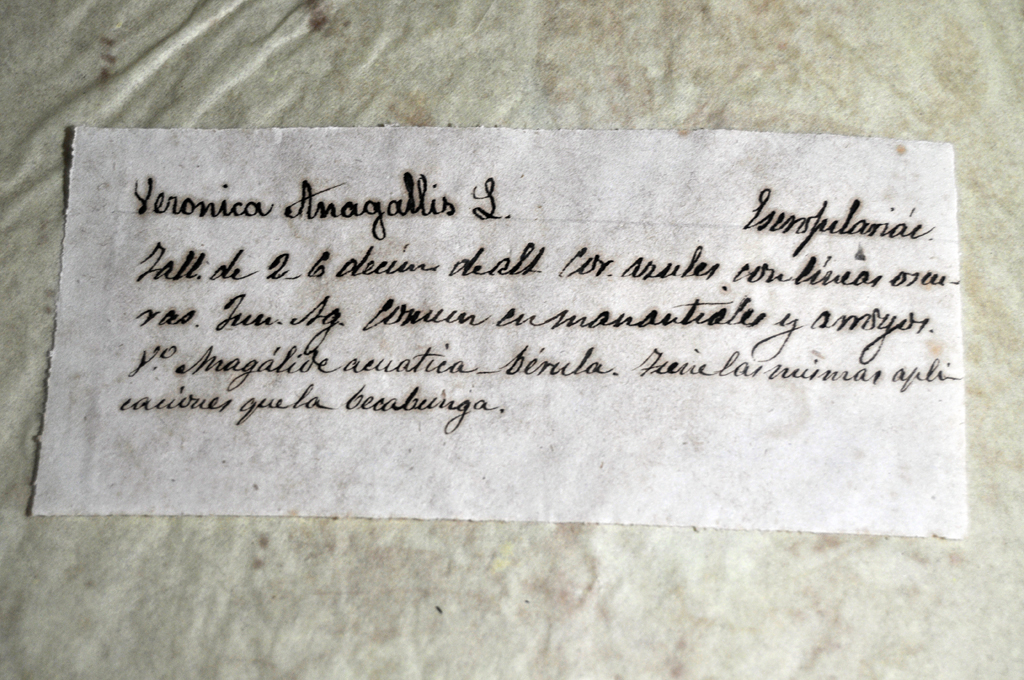 Veronica Anagallis L. Escrofulariác.
Tall. de 2_6 decím. de alt Cor. azules, con líneas oscu-
ras. Jun. Ag. Comun en manantiales y arroyos.
Vº Anagálide acuatica_Bérula. Tiene las mismas apli-
caciones que la becabunga.